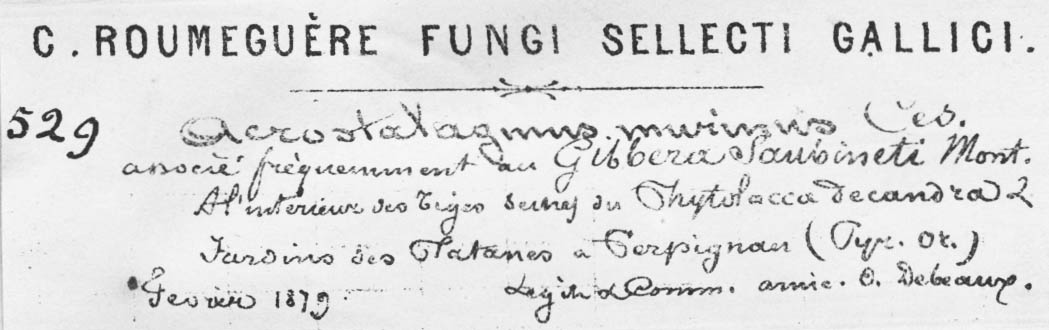 C. ROUMEGUÈRE FUNGI SELLECTI GALLICI.
529 Acrostalagmus murinus Ces.
associé fréquemment au Gibbera Saubineti Mont.
A l'interieur des tiges du Phytolacca decandra L
Jardins des Platanes à Perpignan (Pyr. Or.)
Fevrier 1879 Legit & Comm. amic. O. Debeaux.